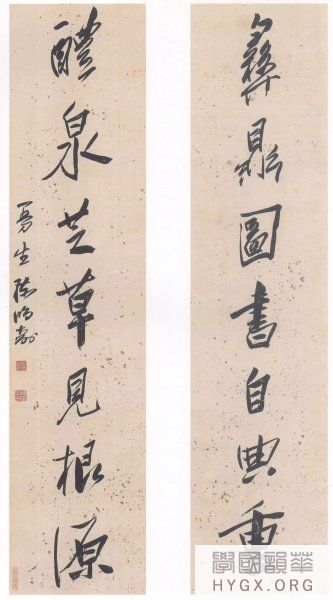 彝鼎圖書自典重
醴泉芝草見根源
曼生陳鴻壽
學國韻華
HYGX.ORG